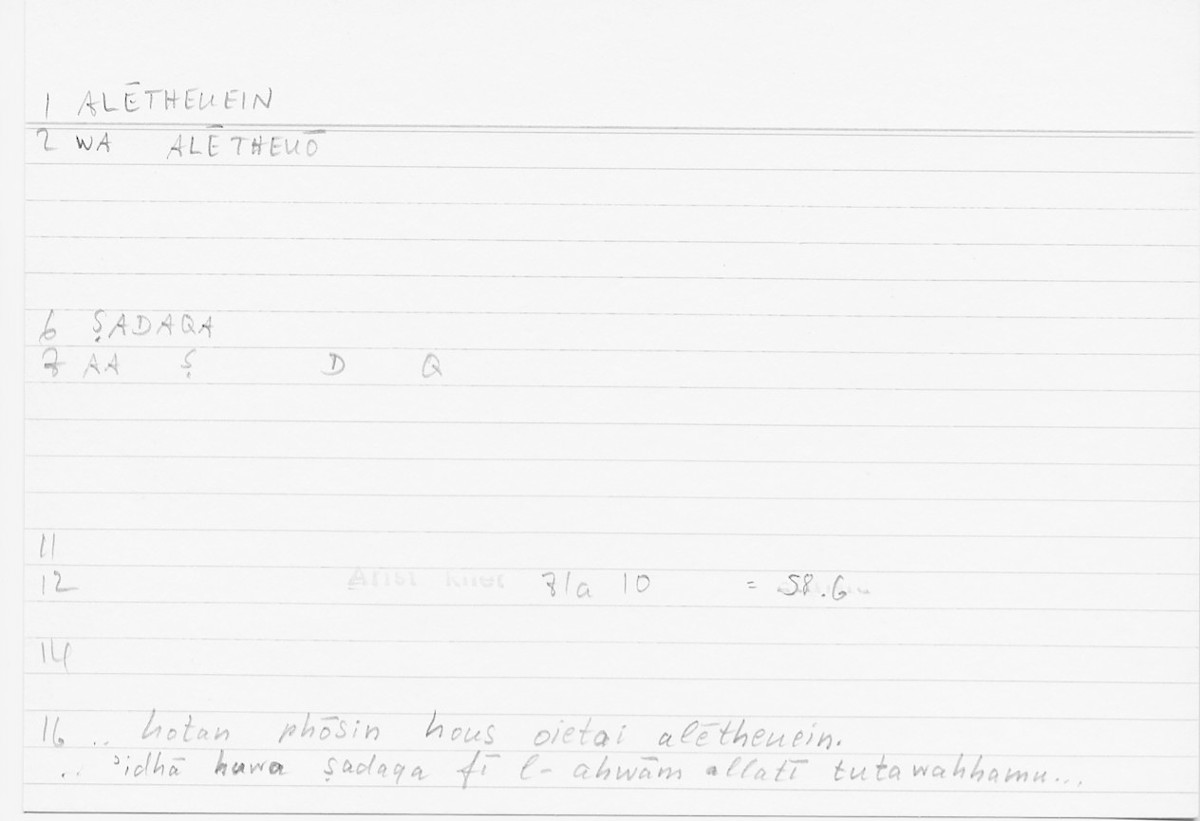 1 ALĒTHEUEIN
2 WA ALĒTHEUŌ
6 ṢADAQA
7 AA Ṣ D Q
11
12 Arist Rhet 71a 10 = 58.6
14
16 .. hotan phōsin hous oietai alētheuein.
.. ʾidhā huwa ṣadaqa fī l- ahwām allatī tutawahhamu...